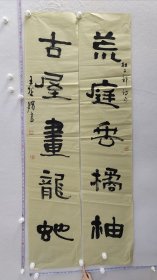 荒庭垂橘柚
古屋畫龍蛇